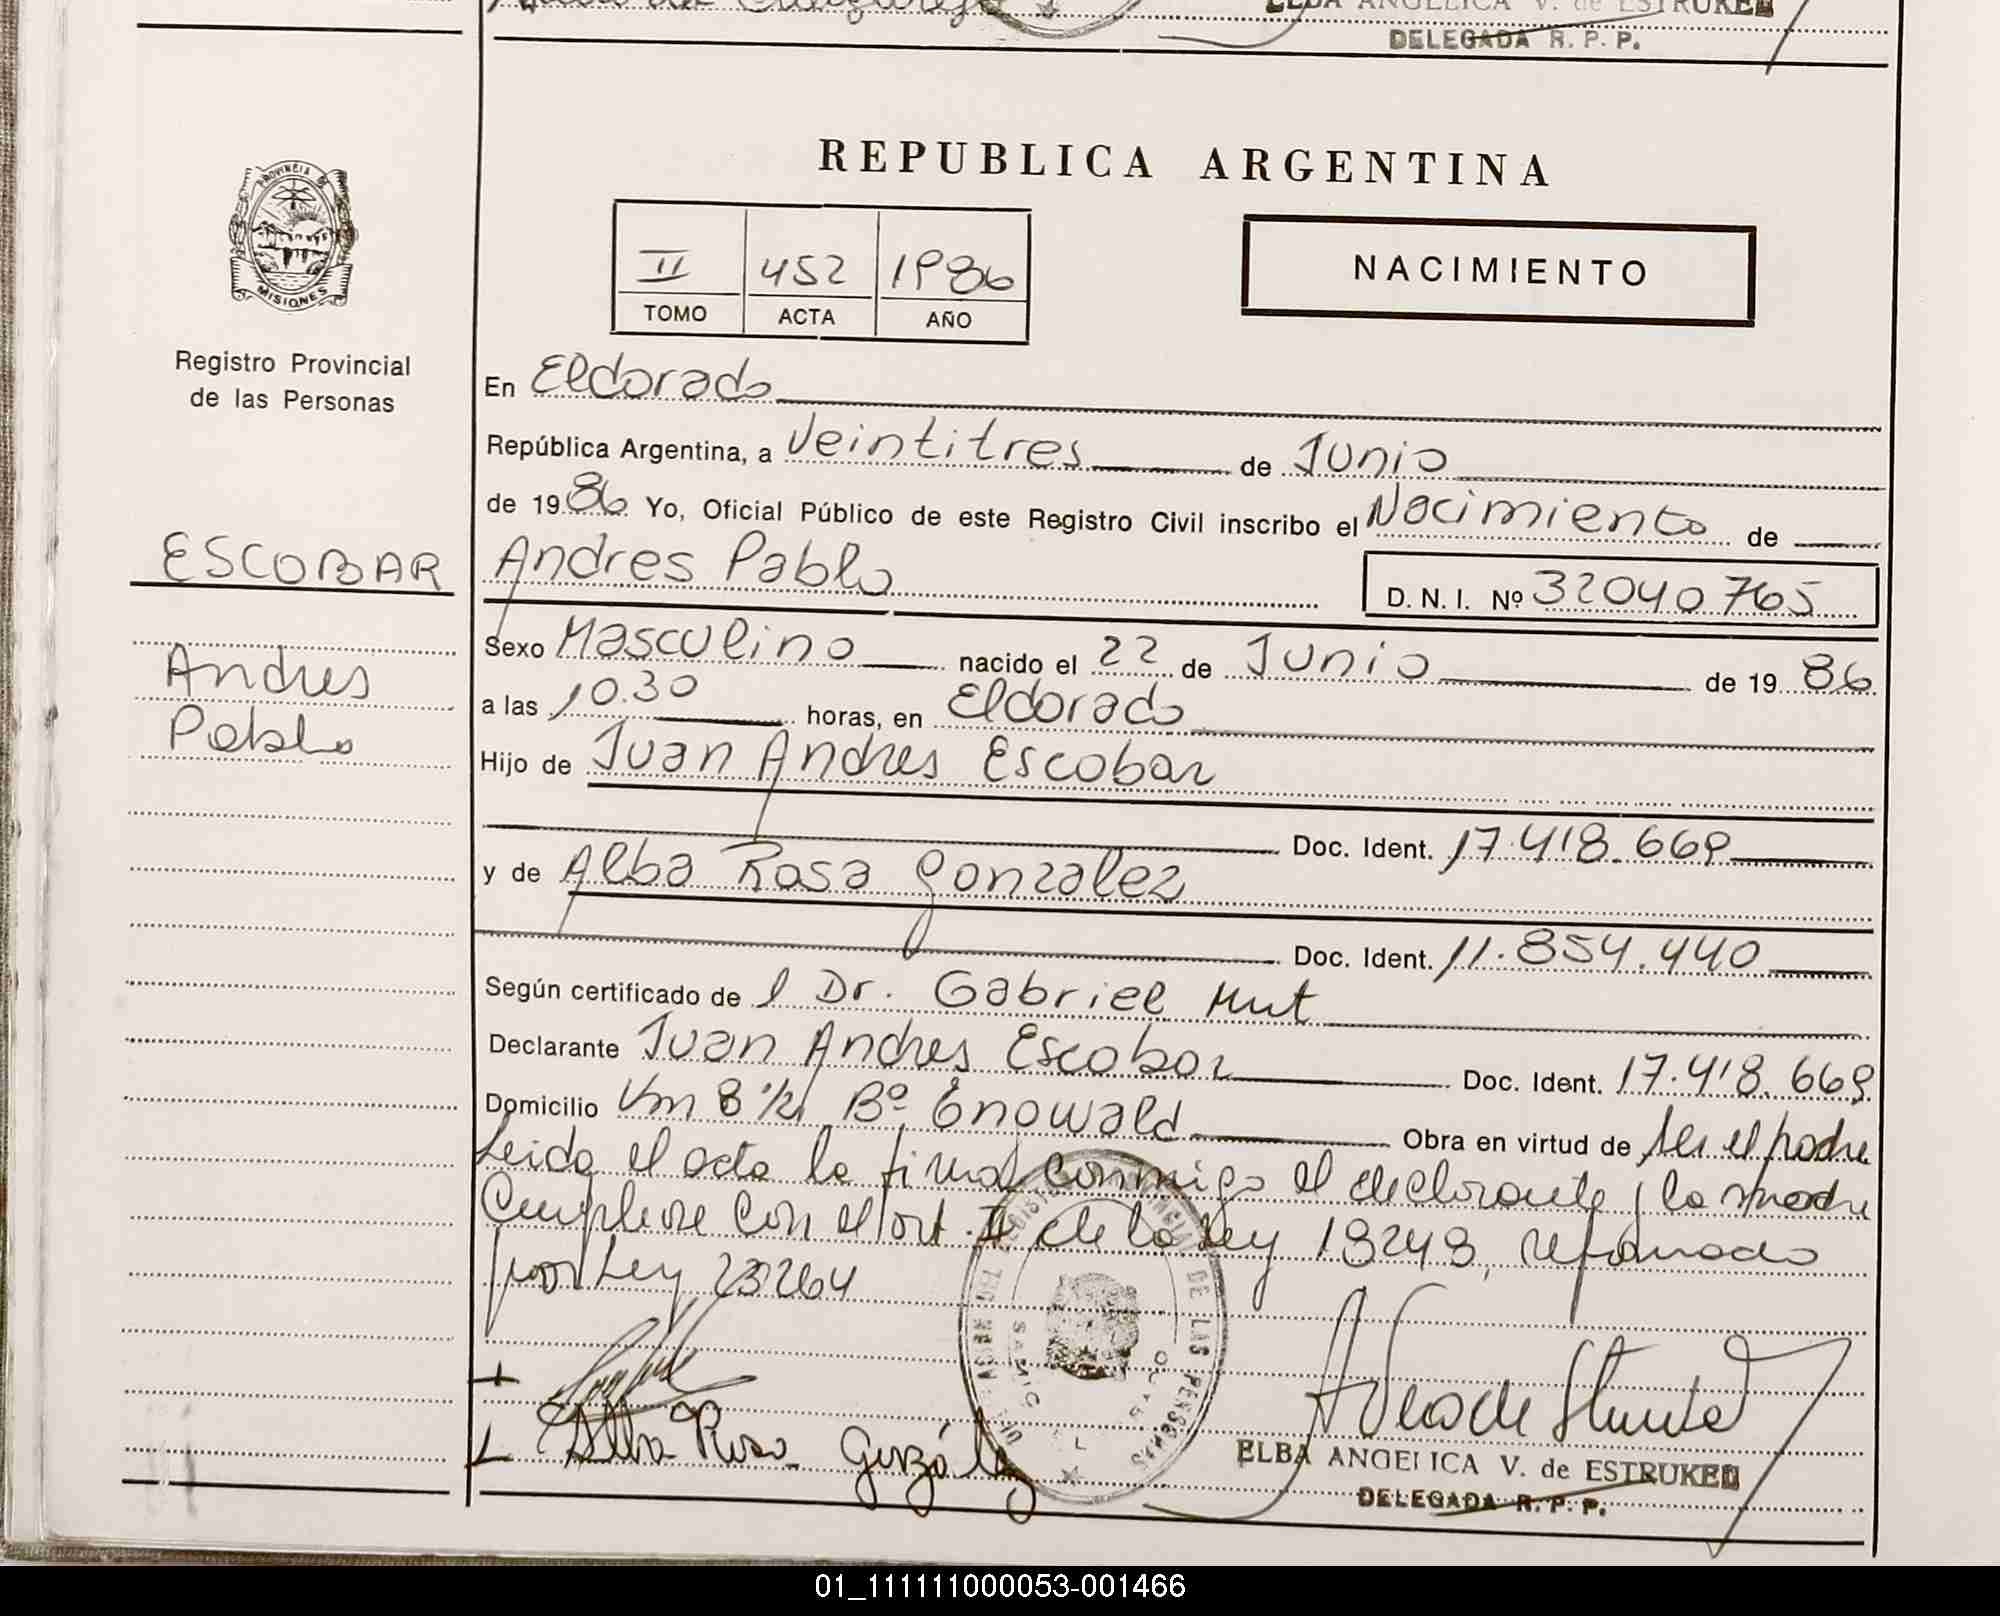 ELBA ANGELICA V. de ESTRUKEL
DELEGADA R. P. P.
PROVINCIA DE
MISIONES
Registro Provincial
de las Personas
ESCOBAR
Andres
Pablo
REPUBLICA ARGENTINA
II 452 1986
TOMO ACTA AÑO
NACIMIENTO
En Eldorado
República Argentina, a Veintitres de Junio
de 1986 Yo, Oficial Público de este Registro Civil inscribo el Nacimiento de
Andres Pablo D. N. I. Nº 32040765
Sexo Masculino nacido el 22 de Junio de 1986
a las 10.30 horas, en Eldorado
Hijo de Juan Andres Escobar
Doc. Ident. 17.418.669
y de Alba Rosa Gonzalez
Doc. Ident. 11.854.440
Según certificado de l Dr. Gabriel Mut
Declarante Juan Andres Escobar Doc. Ident. 17.418.669
Domicilio Km 8 1/2 Bº Enowald Obra en virtud de ser el padre
Leida el acta la firma conmigo el declarante y la madre
Cumplese con el art. II de la Ley 18248, reformado
por Ley 23264
Alba Rosa Gonzáles
ELBA ANGELICA V. de ESTRUKEL
DELEGADA R. P. P.
01_111111000053-001466